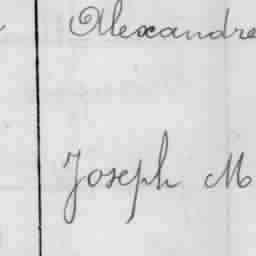 Alexandre
Joseph M